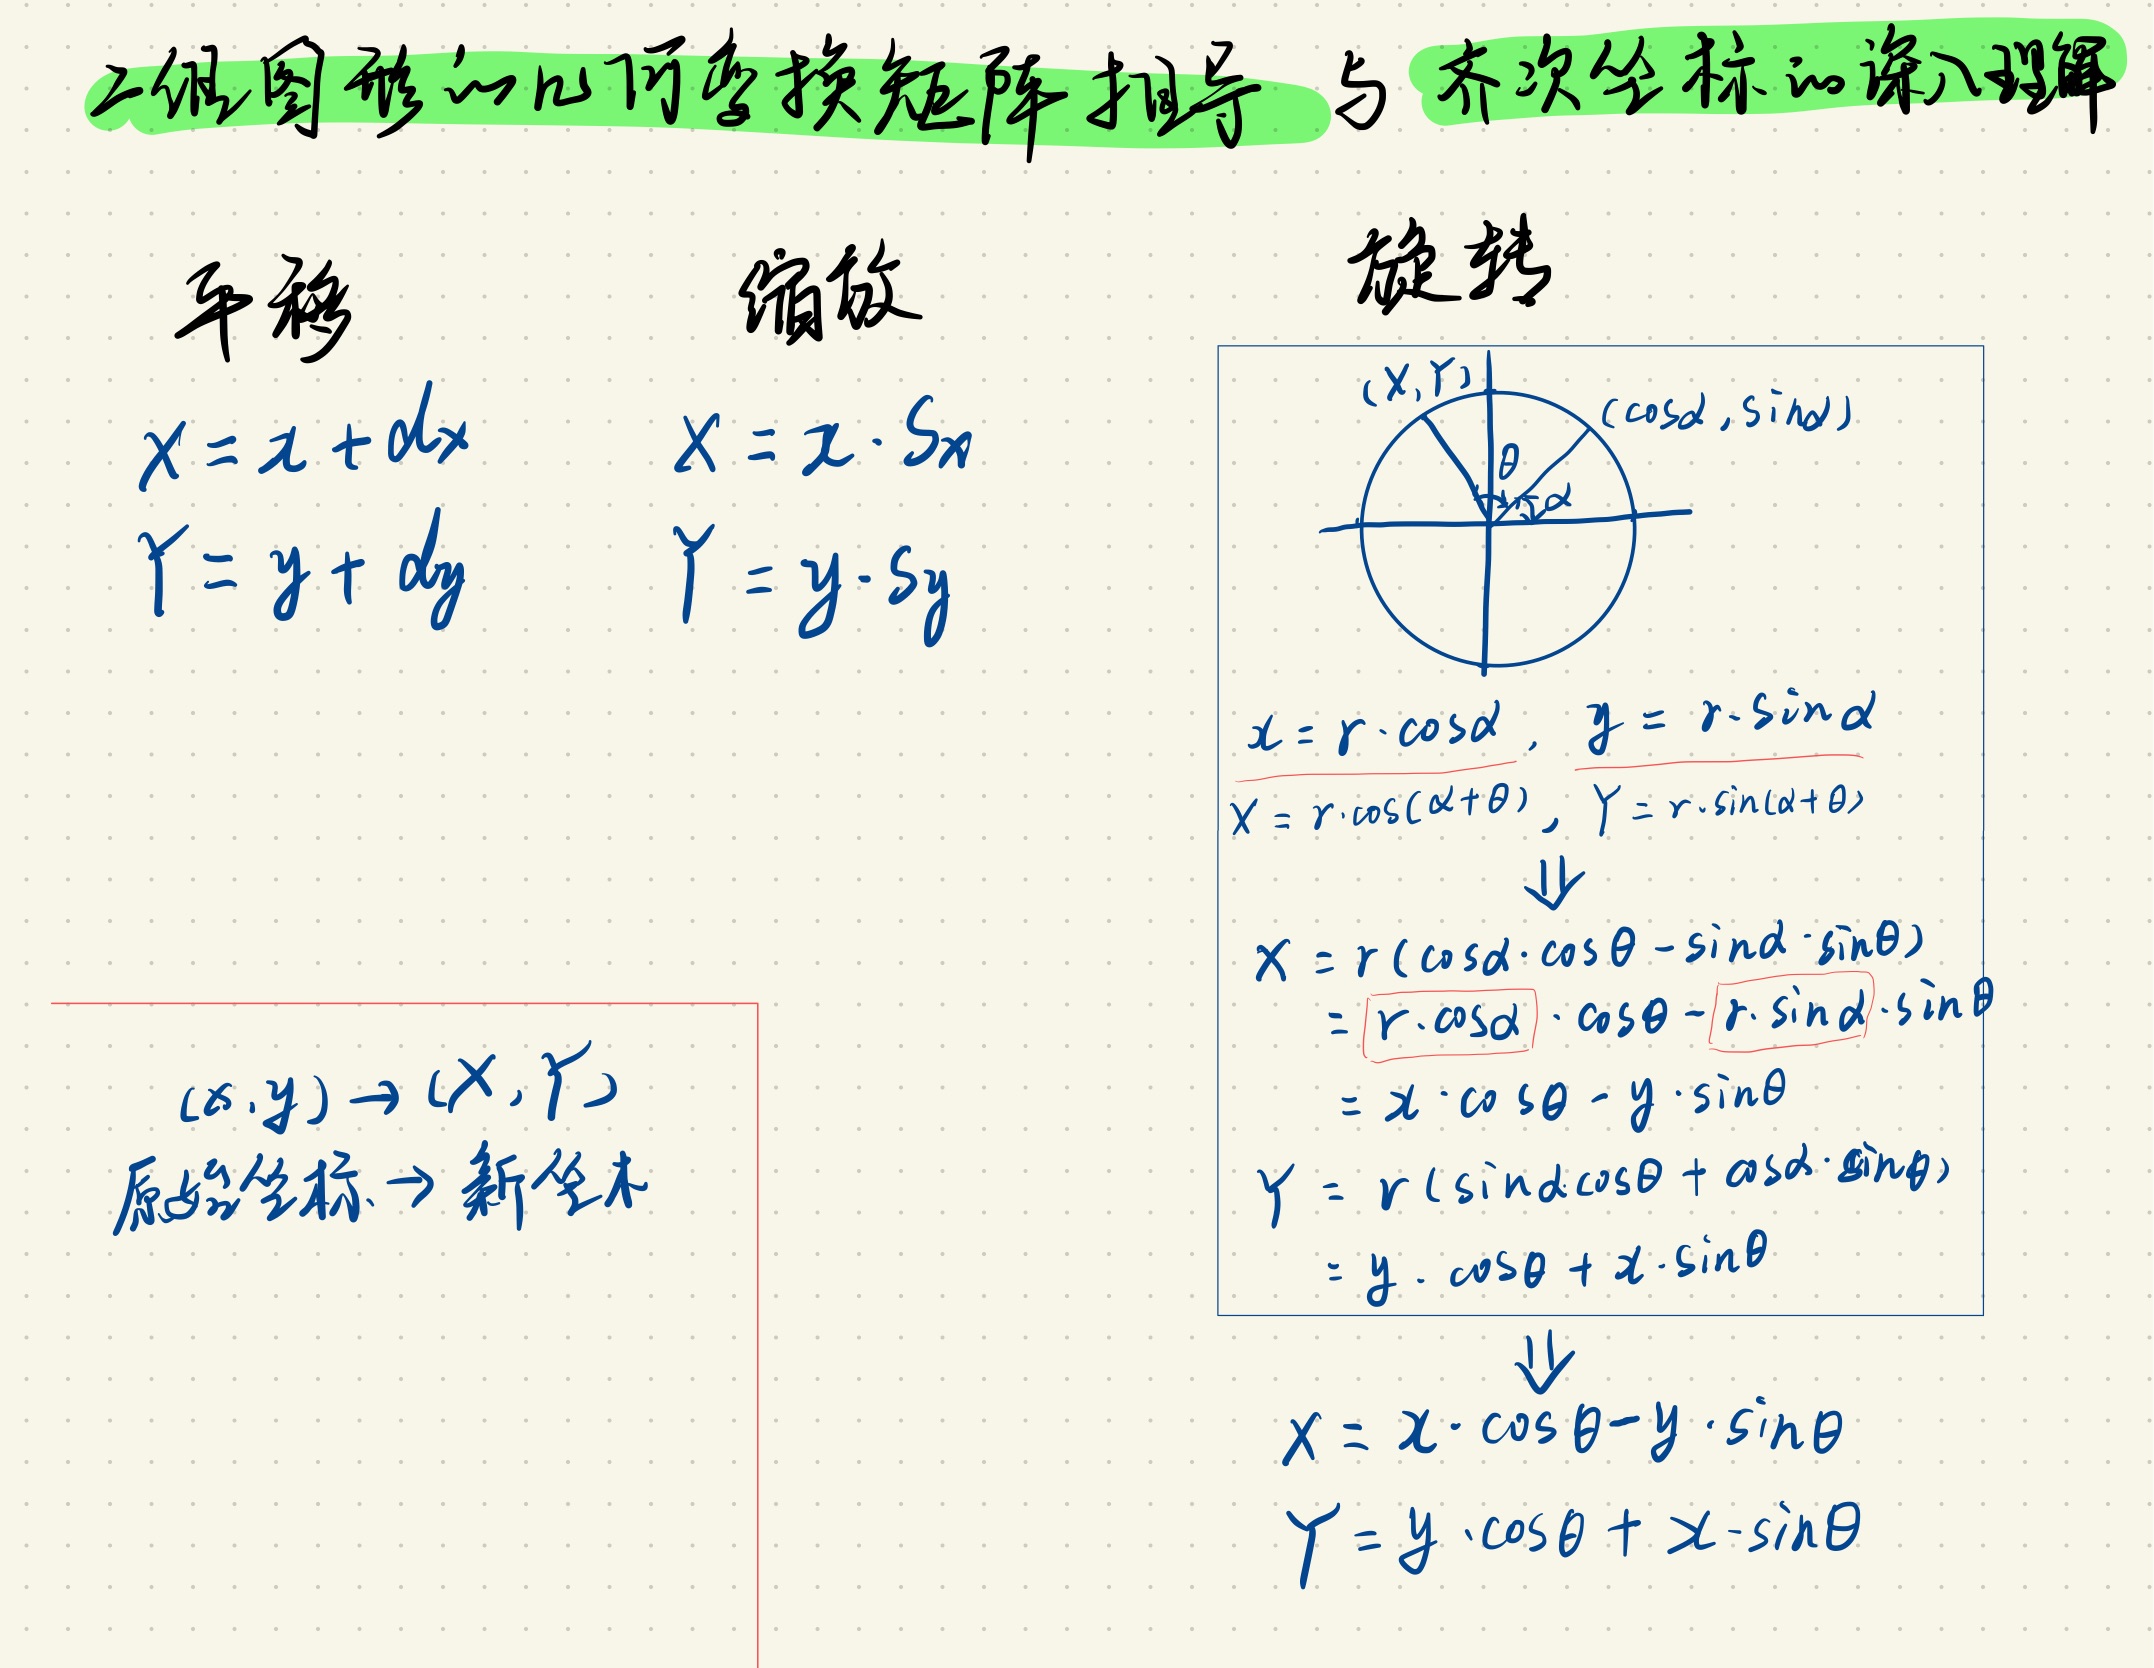 二维图形的几何变换矩阵推导与齐次坐标的深入理解
平移
X = x + dx
Y = y + dy
缩放
X = x · Sx
Y = y · Sy
旋转
(X, Y)
(cosα, sinα)
θ
α
x = r · cosα, y = r · sinα
X = r · cos(α+θ), Y = r · sin(α+θ)
⇓
X = r(cosα · cosθ - sinα · sinθ)
= r · cosα · cosθ - r · sinα · sinθ
= x · cosθ - y · sinθ
Y = r(sinα · cosθ + cosα · sinθ)
= y · cosθ + x · sinθ
⇓
X = x · cosθ - y · sinθ
Y = y · cosθ + x · sinθ
(x, y) → (X, Y)
原始坐标 → 新坐木